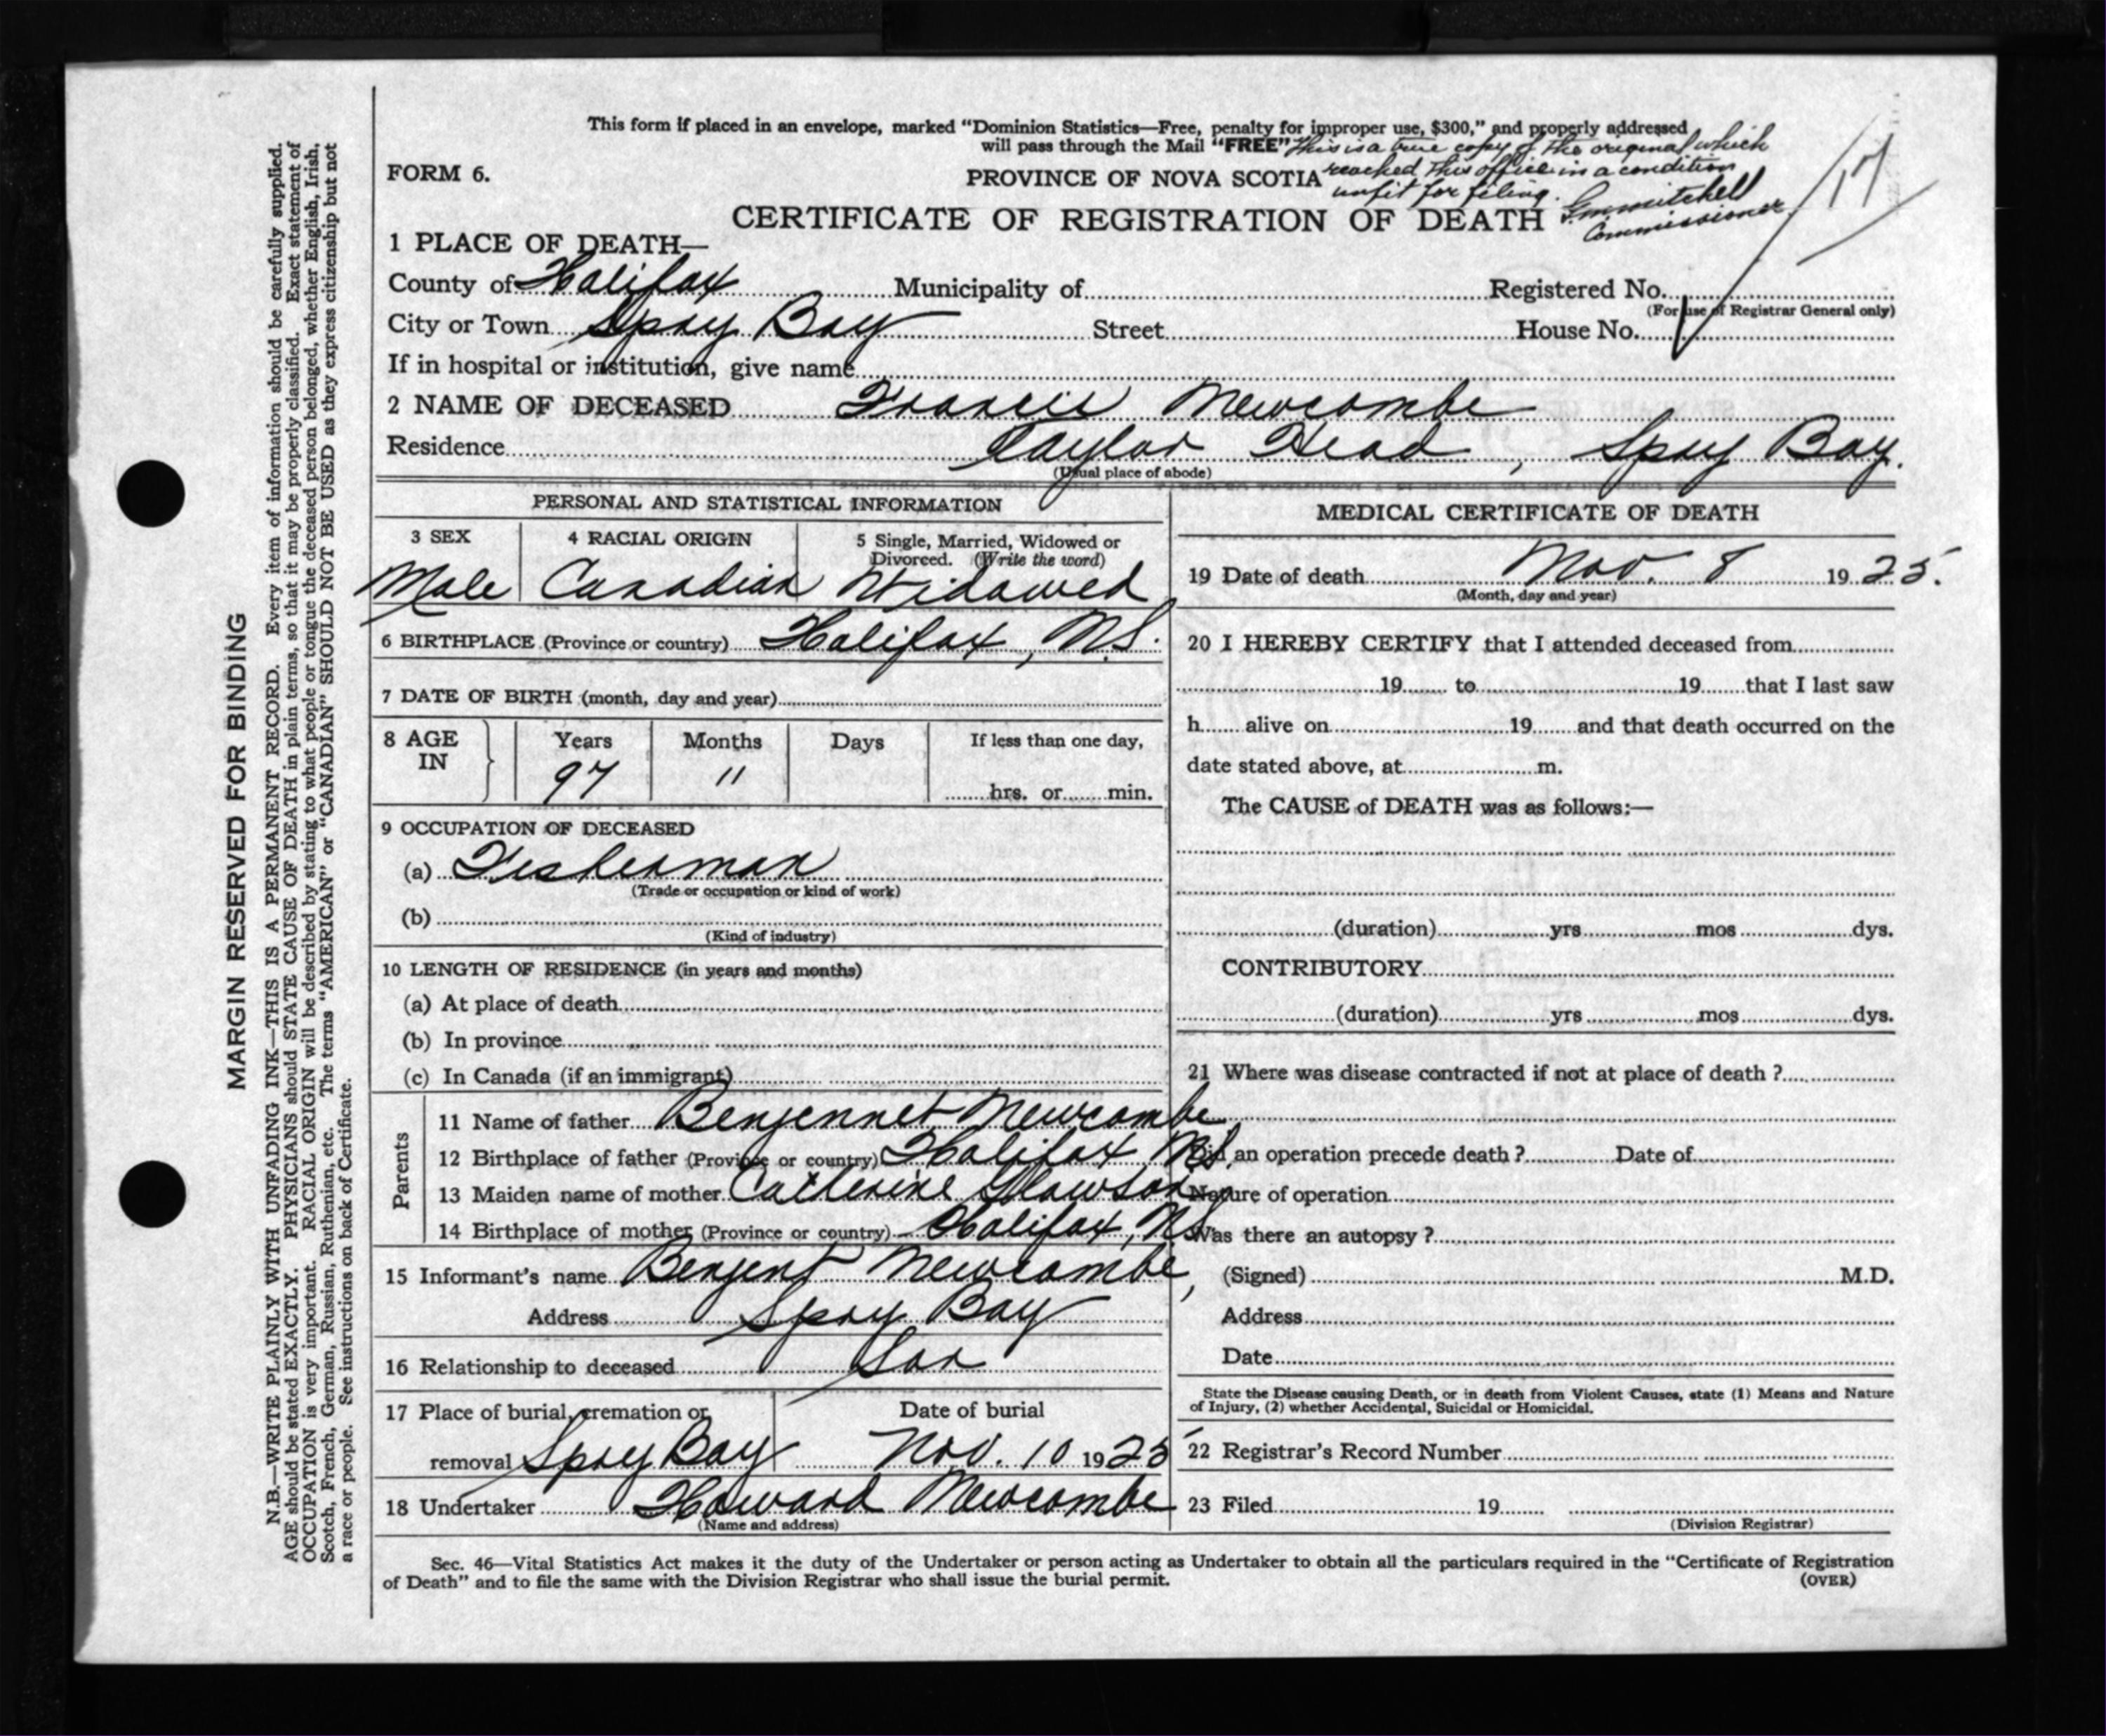 This form if placed in an envelope, marked “Dominion Statistics—Free, penalty for improper use, $300,” and properly addressed
will pass through the Mail “FREE”
This is a true copy of the original which
reached this office in a condition
unfit for filing.
Commissioner
17
FORM 6.
PROVINCE OF NOVA SCOTIA
CERTIFICATE OF REGISTRATION OF DEATH
1 PLACE OF DEATH—
County of Halifax Municipality of Registered No.
(For use of Registrar General only)
City or Town Spry Bay Street House No.
If in hospital or institution, give name
2 NAME OF DECEASED Francis Newcombe
Residence Taylor Head, Spry Bay.
(Usual place of abode)
PERSONAL AND STATISTICAL INFORMATION
3 SEX 4 RACIAL ORIGIN 5 Single, Married, Widowed or
Divorced. (Write the word)
Male Canadian Widowed
6 BIRTHPLACE (Province or country) Halifax, N.S.
7 DATE OF BIRTH (month, day and year)
8 AGE IN Years Months Days If less than one day,
97 11 hrs. or min.
9 OCCUPATION OF DECEASED
(a) Fisherman
(Trade or occupation or kind of work)
(b)
(Kind of industry)
10 LENGTH OF RESIDENCE (in years and months)
(a) At place of death
(b) In province
(c) In Canada (if an immigrant)
Parents
11 Name of father Benjennet Newcombe
12 Birthplace of father (Province or country) Halifax, N.S.
13 Maiden name of mother Catherine
14 Birthplace of mother (Province or country) Halifax, N.S.
15 Informant's name Benjent Newcombe,
Address Spry Bay
16 Relationship to deceased Son
17 Place of burial, cremation or Date of burial
removal Spry Bay Nov. 10 1925
18 Undertaker Howard Newcombe
(Name and address)
MEDICAL CERTIFICATE OF DEATH
19 Date of death Nov. 8 1925.
(Month, day and year)
20 I HEREBY CERTIFY that I attended deceased from
19 to 19 that I last saw
h alive on 19 and that death occurred on the
date stated above, at m.
The CAUSE of DEATH was as follows:—
(duration) yrs mos dys.
CONTRIBUTORY
(duration) yrs mos dys.
21 Where was disease contracted if not at place of death ?
Did an operation precede death ? Date of
Nature of operation
Was there an autopsy ?
(Signed) M.D.
Address
Date
State the Disease causing Death, or in death from Violent Causes, state (1) Means and Nature
of Injury, (2) whether Accidental, Suicidal or Homicidal.
22 Registrar's Record Number
23 Filed 19
(Division Registrar)
Sec. 46—Vital Statistics Act makes it the duty of the Undertaker or person acting as Undertaker to obtain all the particulars required in the “Certificate of Registration
of Death” and to file the same with the Division Registrar who shall issue the burial permit.
(OVER)
MARGIN RESERVED FOR BINDING
N.B.—WRITE PLAINLY WITH UNFADING INK—THIS IS A PERMANENT RECORD. Every item of information should be carefully supplied.
AGE should be stated EXACTLY. PHYSICIANS should STATE CAUSE OF DEATH in plain terms, so that it may be properly classified. Exact statement of
OCCUPATION is very important. RACIAL ORIGIN will be described by stating to what people or tongue the deceased person belonged, whether English, Irish,
Scotch, French, German, Russian, Ruthenian, etc. The terms “AMERICAN” or “CANADIAN” SHOULD NOT BE USED as they express citizenship but not
a race or people. See instructions on back of Certificate.